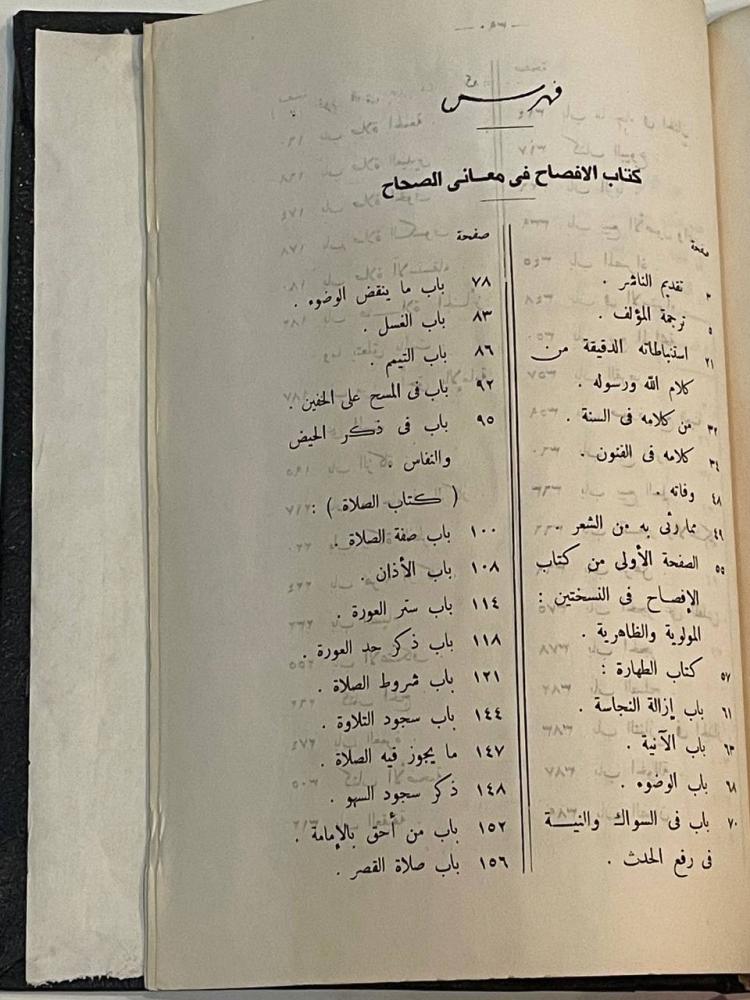 فهرس
كتاب الافصاح فى معانى الصحاح
صفحة
٣ تقديم الناشر .
٥ ترجمة المؤلف .
٢١ استنباطاته الدقيقة من
كلام الله ورسوله .
٣٢ من كلامه فى السنة .
٣٤ كلامه فى الفنون .
٤٨ وفاته .
٤٩ مما رثى به من الشعر .
٥٥ الصفحة الأولى من كتاب
الإفصاح فى النسختين :
المولوية والظاهرية .
٥٧ كتاب الطهارة :
٦١ باب إزالة النجاسة .
٦٣ باب الآنية .
٦٨ باب الوضوء .
٧٠ باب فى السواك والنيــة
فى رفع الحدث .
صفحة
٧٨ باب ما ينقض الوضوء .
٨٣ باب الغسل .
٨٦ باب التيمم .
٩٢ باب فى المسح على الخفين .
٩٥ باب فى ذكر الحيض
والنفاس .
( كتاب الصلاة ) :
١٠٠ باب صفة الصلاة .
١٠٨ باب الأذان .
١١٤ باب ستر العورة .
١١٨ باب ذكر حد العورة .
١٢١ باب شروط الصلاة .
١٤٤ باب سجود التلاوة .
١٤٧ ما يجوز فيه الصلاة .
١٤٨ ذكر سجود السهو .
١٥٢ باب من أحق بالإمامة .
١٥٦ باب صلاة القصر .